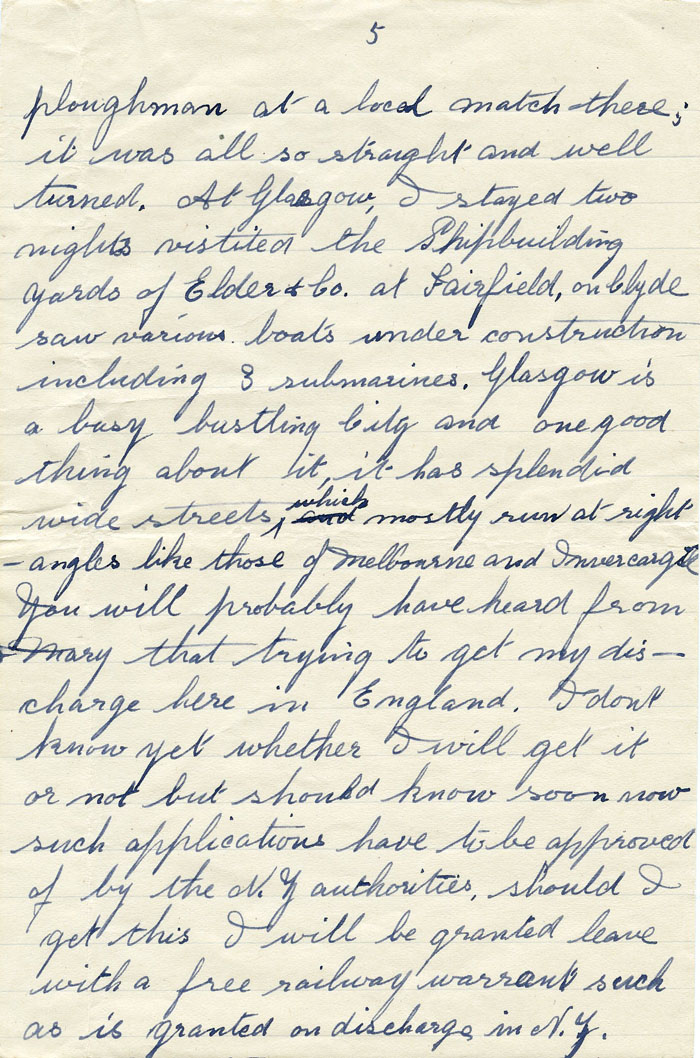 5
ploughman at a local match there;
it was all so straight and well
turned. At Glasgow, I stayed two
nights vistited the Shipbuilding
yards of Elder & Co. at Fairfield, on Clyde
saw various boats under construction
including 3 submarines. Glasgow is
a busy bustling City and one good
thing about it, it has splendid
wide streets, which and mostly run at right
-angles like those of Melbourne and Invercargill
You will probably have heard from
Mary that trying to get my dis-
charge here in England. I dont
know yet whether I will get it
or not but should know soon now
such applications have to be approved
of by the N.Z authorities, should I
get this I will be granted leave
with a free railway warrant such
as is granted on discharge in N.Z.